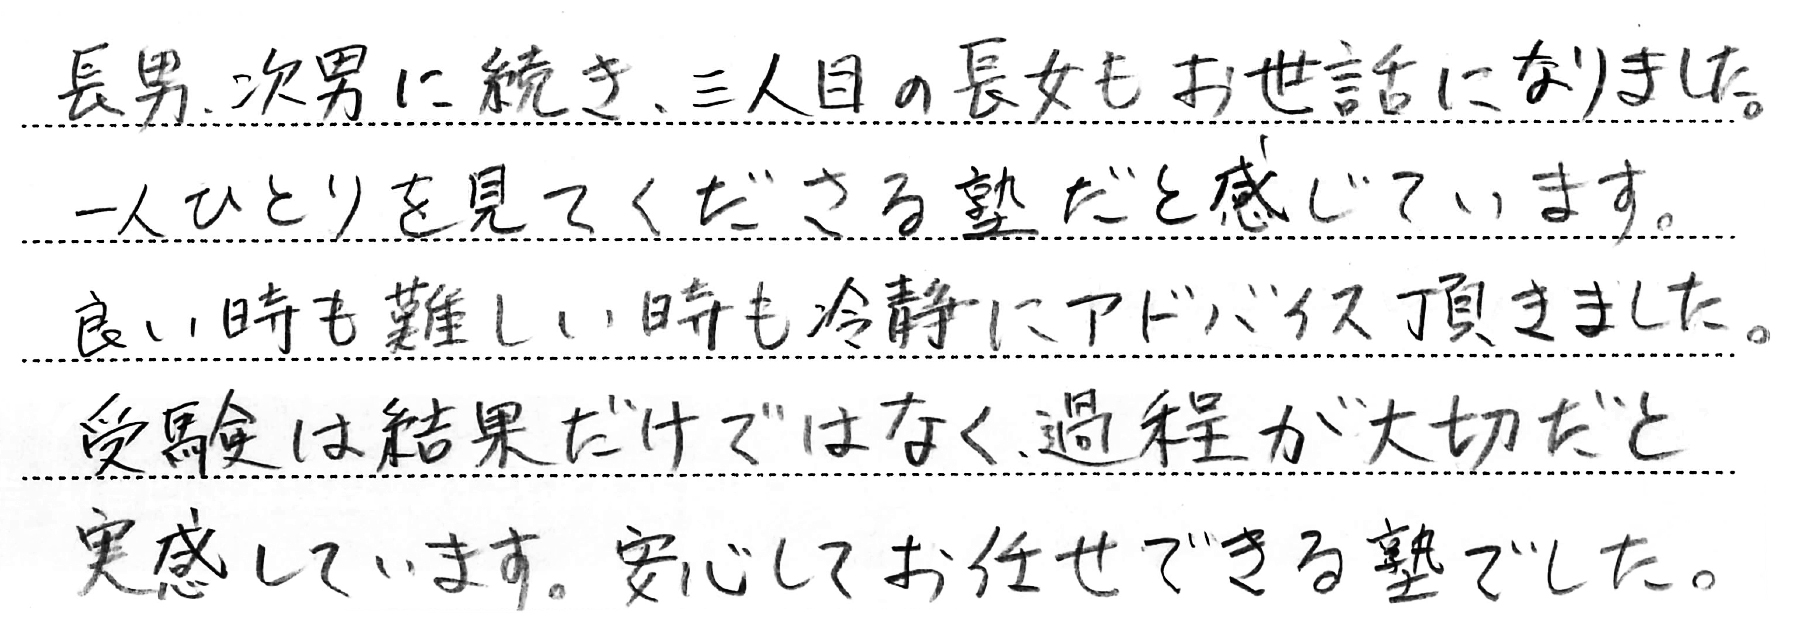 長男、次男に続き、三人目の長女もお世話になりました。
一人ひとりを見てくださる塾だと感じています。
良い時も難しい時も冷静にアドバイス頂きました。
受験は結果だけではなく、過程が大切だと
実感しています。安心してお任せできる塾でした。